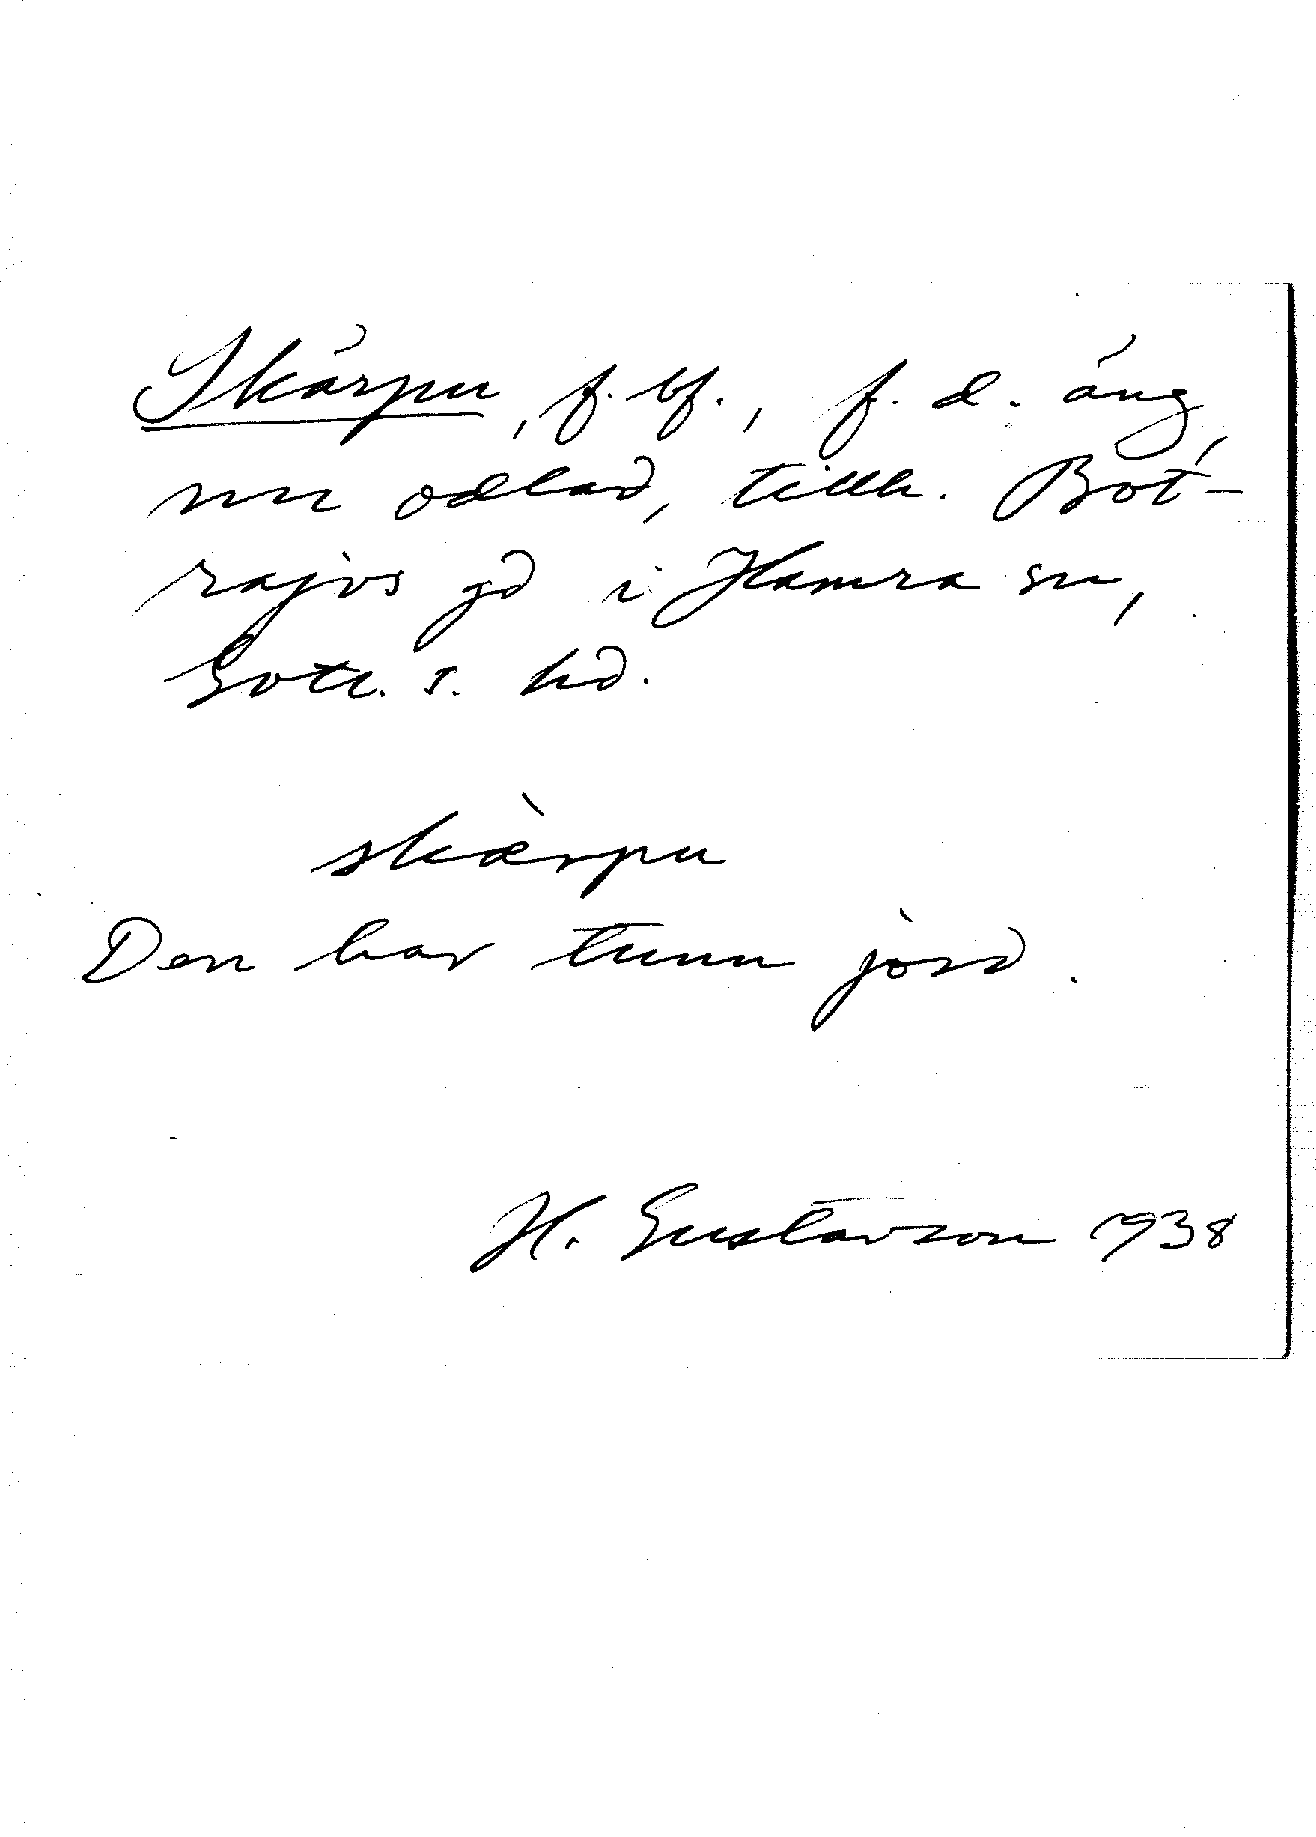 Skärpu, f. bf., f. d. äng,
nu odlad, tillh. Bot-
rajvs gd i Hamra sn,
Gotl. s. hd.
skæ̀rpu
Den har tunn jord.
H. Gustavson 1938